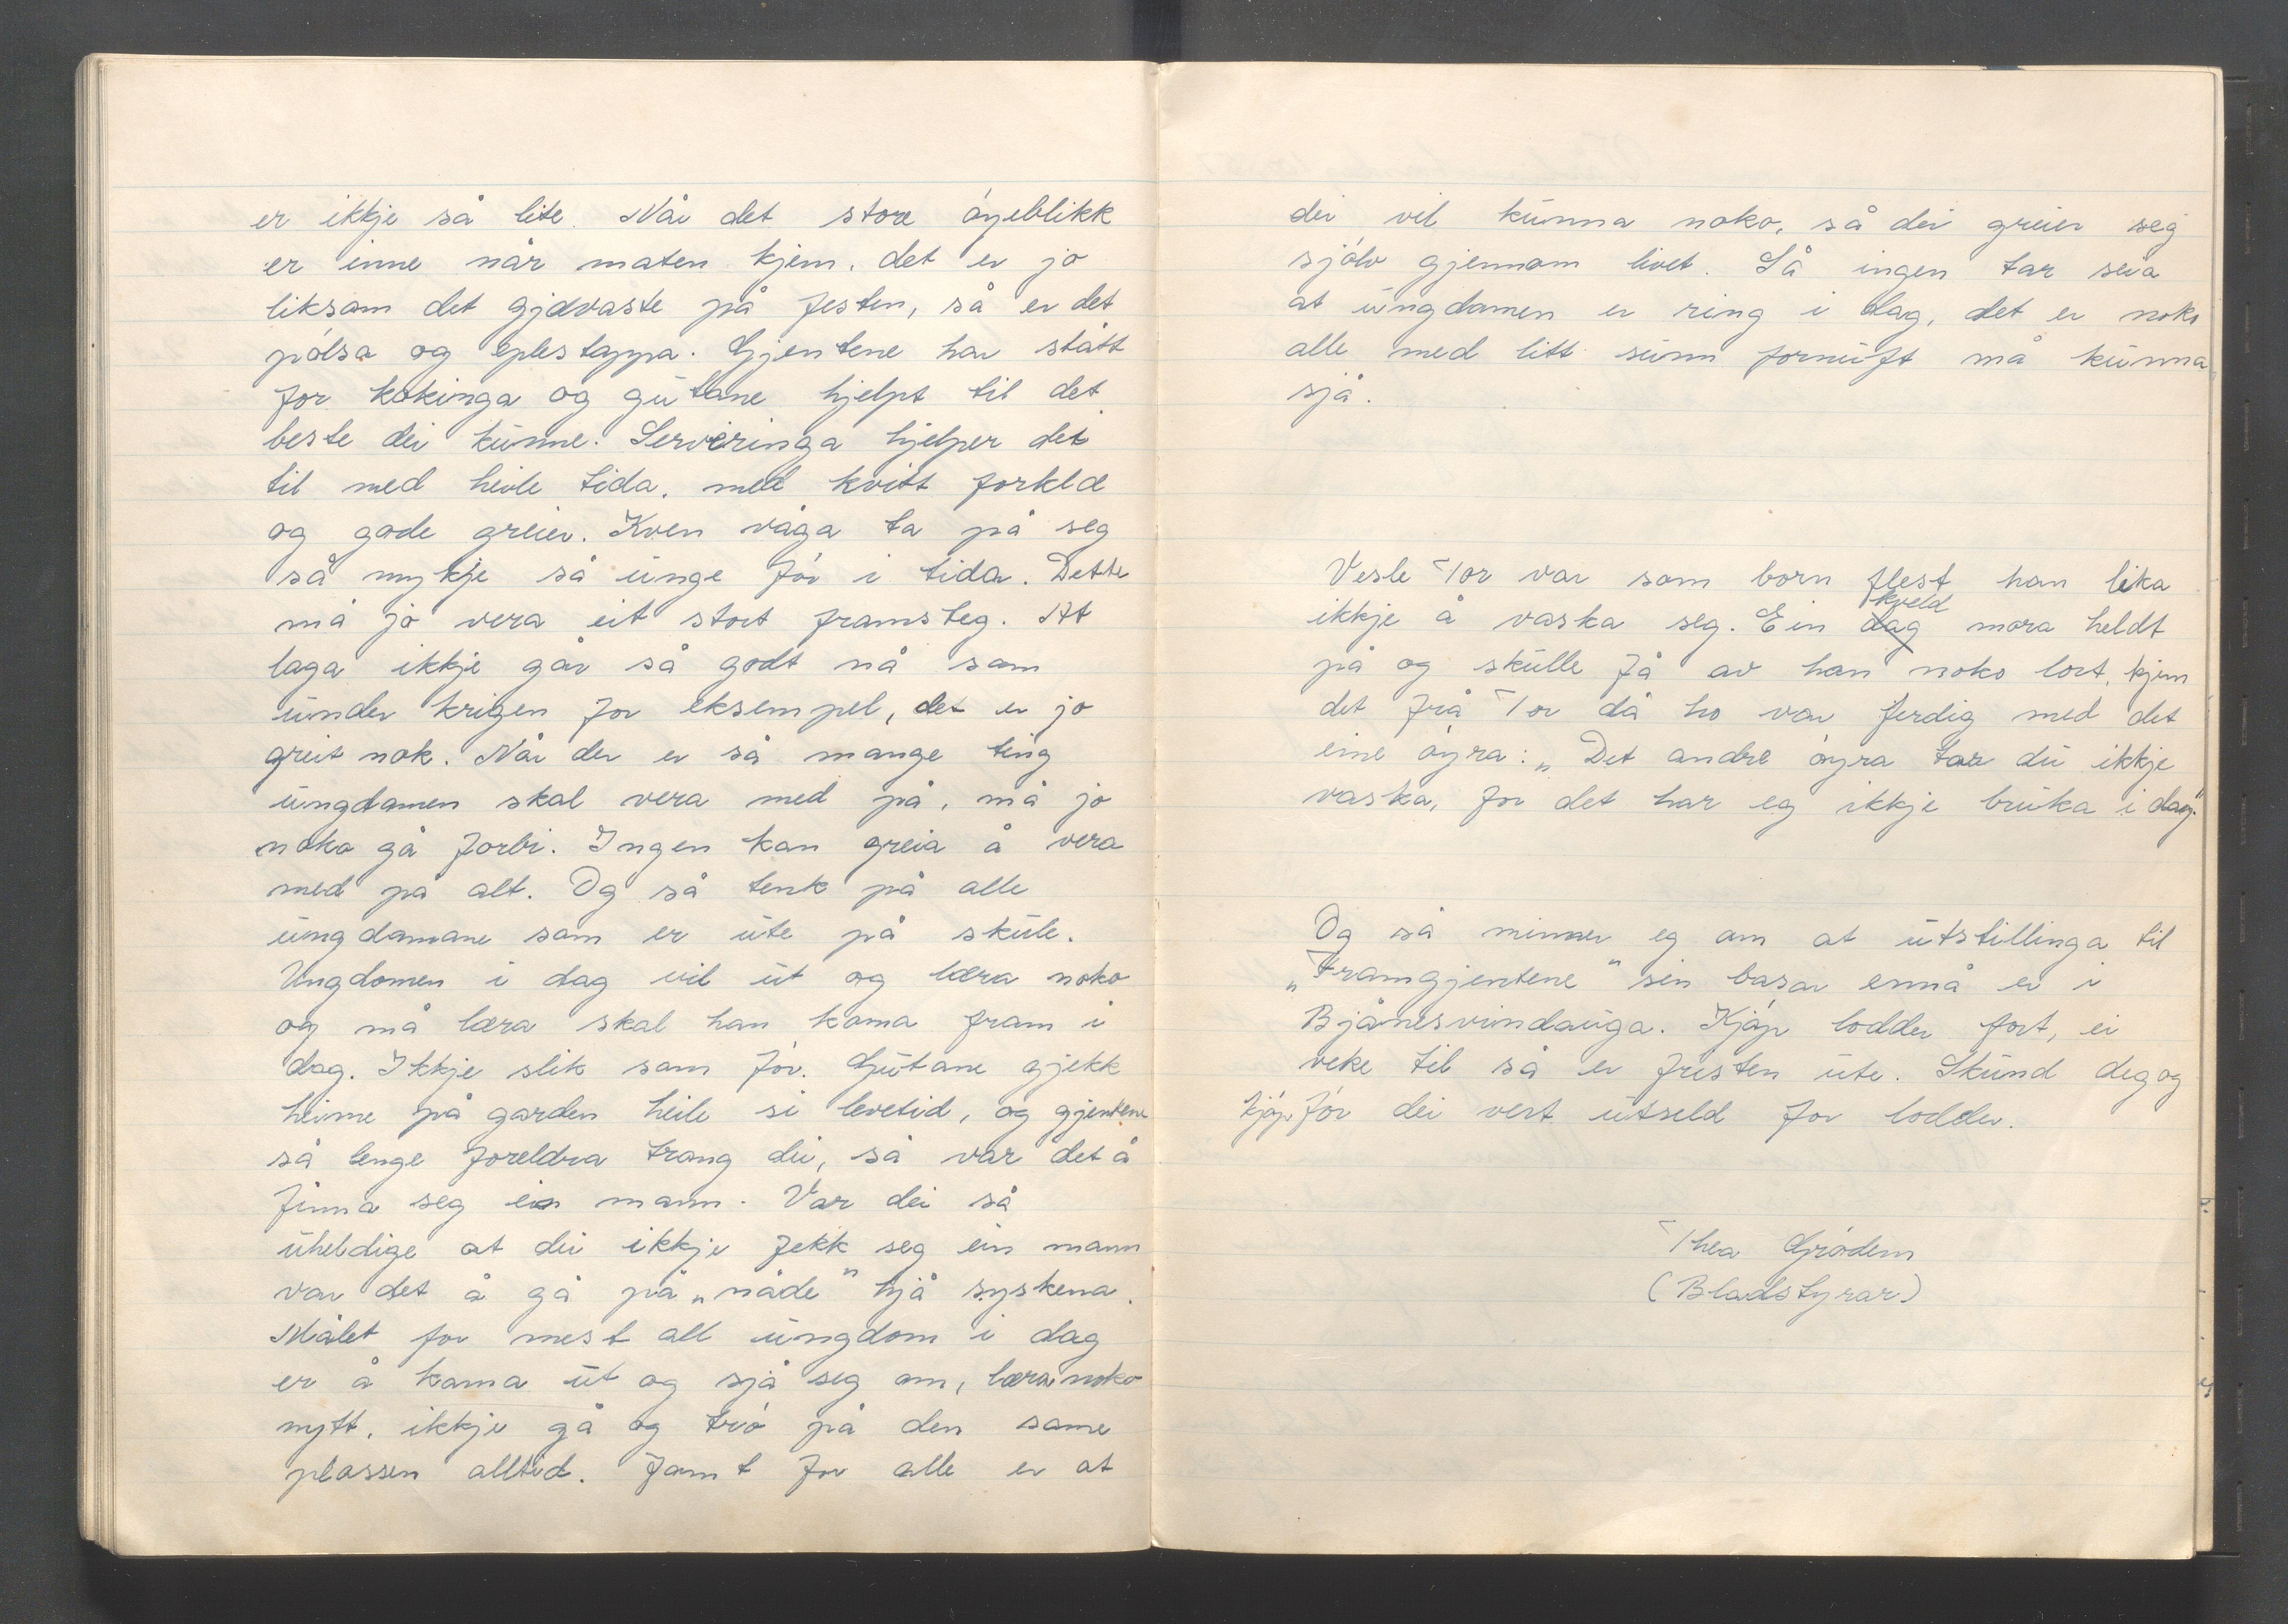 er ikkje så lite. Når det store óyeblikk
er inne når maten kjem. det er jo
liksom det gjævaste på festen, så er det
pólsa og eplestappa. Gjentene har stått
for kokinga og gutane hjelpt til det
beste dei kunne. Serveringa hjelper dei
til med heile tida. med kvitt forklæ
og gode greier. Kven våga ta på seg
så mykje så unge fór i tida. Dette
må jo vera eit stort framsteg. At
laga ikkje går så godt nå som
under krigen for eksempel, det er jo
greit nok. Når der er så mange ting
ungdomen skal vera med på, må jo
noko gå forbi. Ingen kan greia å vera
med på alt. Og så tenk på alle
ungdomane som er ute på skule.
Ungdomen i dag vil ut og læra noko
og må læra skal han koma fram i
dag. Ikkje slik som fór. Gutane gjekk
heime på garden heile si levetid, og gjentene
så lenge foreldra trong dei, så var det å
finna seg ein mann. Var dei så
uheldige at dei ikkje fekk seg ein mann
var det å gå på „nåde" hjå syskena.
Målet for mest all ungdom i dag
er å koma ut og sjå seg om, læra noko
nytt. ikkje gå og tró på den same
plassen alltid. Jamt for alle er at
dei vil kunna noko, så dei greier seg
sjólv gjennom livet. Så ingen tar seia
at ungdomen er ring i dag, det er noko
alle med litt sunn fornuft må kunna
sjå.
Vesle Tor var som born flest han lika
ikkje å vaska seg. Ein dag kveld mora heldt
på og skulle få av han noko lort, kjem
det frå Tor då ho var ferdig med det
eine óyra: „Det andre óyra tar du ikkje
vaska, for det har eg ikkje bruka i dag."
Og så minner eg om at utstillinga til
„Framgjentene" sin basar ennå er i
Bjånesvindauga. Kjóp lodder fort, ei
veke til så er fristen ute. Skund deg og
kjóp fór dei vert utseld for lodder.
Thea Gródem
(Bladstyrar)